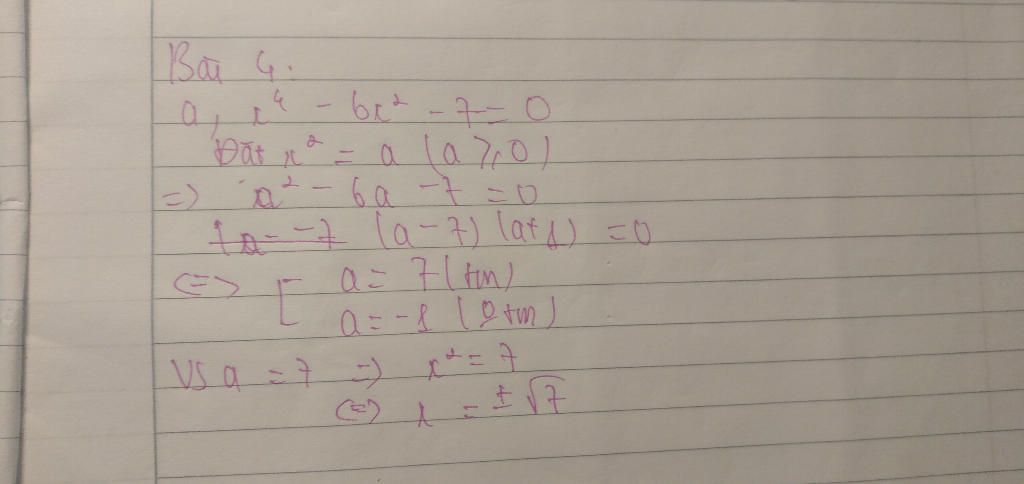 Bài 4.
a, x⁴ - 6x² - 7 = 0
Đặt x² = a (a ≥ 0)
=> a² - 6a - 7 = 0
(a - 7) (a + 1) = 0
<=> [ a = 7 (tm)
a = -1 (0 tm)
Vs a = 7 => x² = 7
<=> x = ± √7